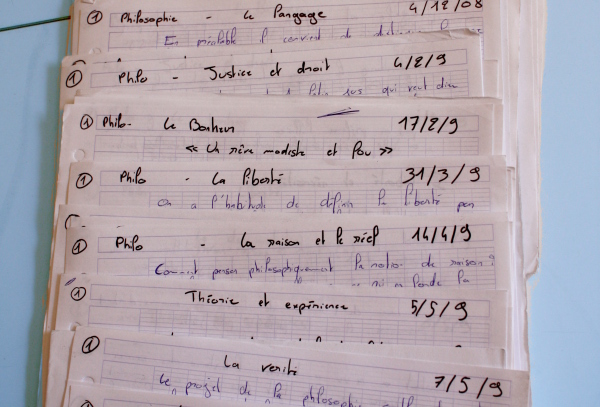 ① Philosophie - Le Langage 4/12/08
En préalable il convient de
① Philo - Justice et droit 4/2/9
qui veut dire
① Philo - Le Bonheur 17/2/9
« Un rêve modiste et fou »
① Philo - La liberté 31/3/9
On a l'habitude de définir la liberté par
① Philo - La raison et le réel 14/4/9
Comment penser philosophiquement la notion de raison ?
① Théorie et expérience 5/5/9
① La verité 7/5/9
Le projet de la philosophie